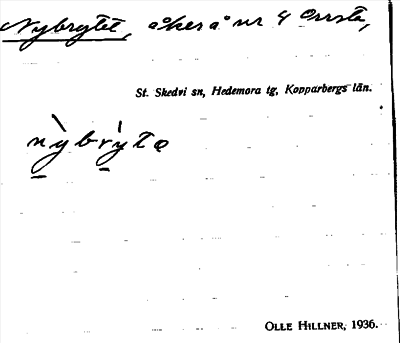 Nybrytet, åker å nr 4 Orrsta,
St. Skedvi sn, Hedemora tg, Kopparbergs län.
nỳbrỳtə
OLLE HILLNER, 1936.